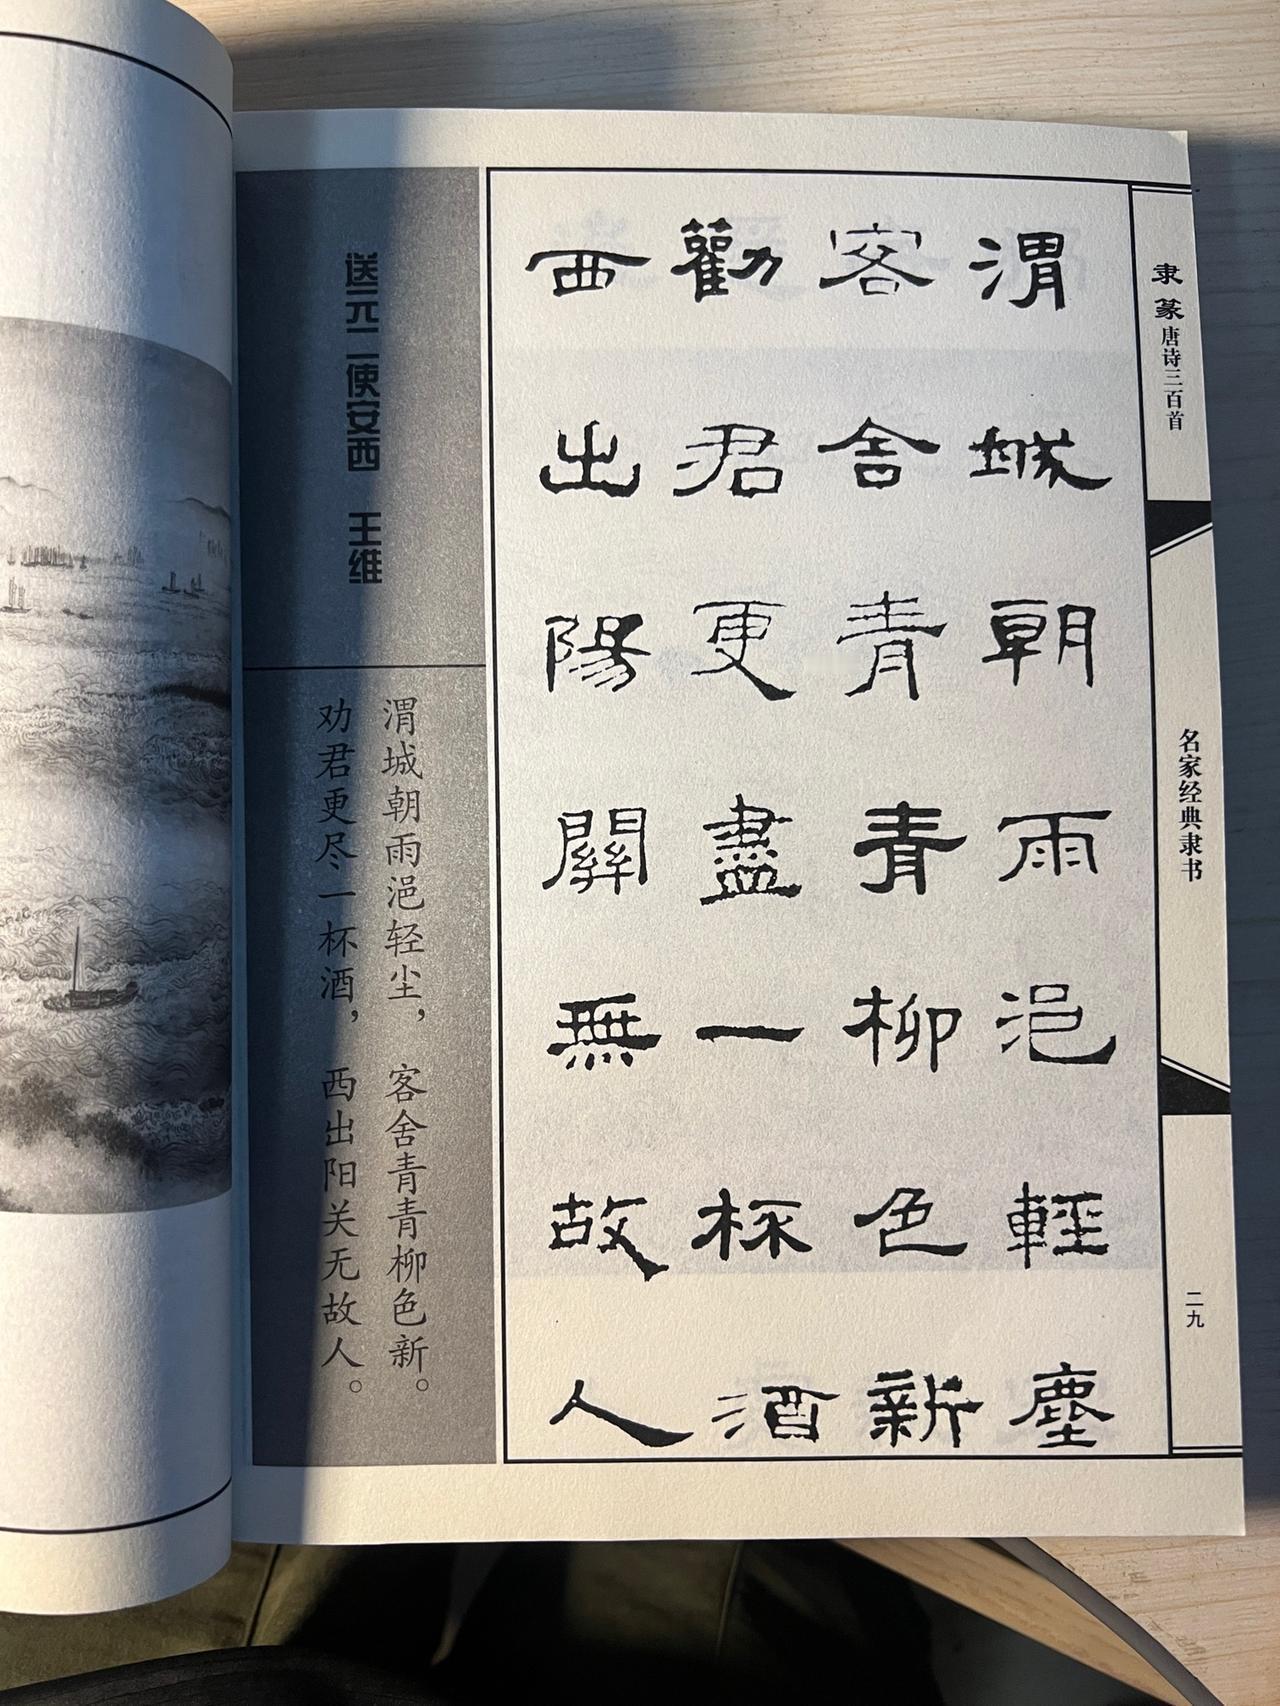 隶篆唐诗三百首
名家经典隶书
二九
渭城朝雨浥輕塵
客舍青青柳色新
勸君更盡一杯酒
西出陽關無故人
送元二使安西 王维
渭城朝雨浥轻尘，客舍青青柳色新。
劝君更尽一杯酒，西出阳关无故人。